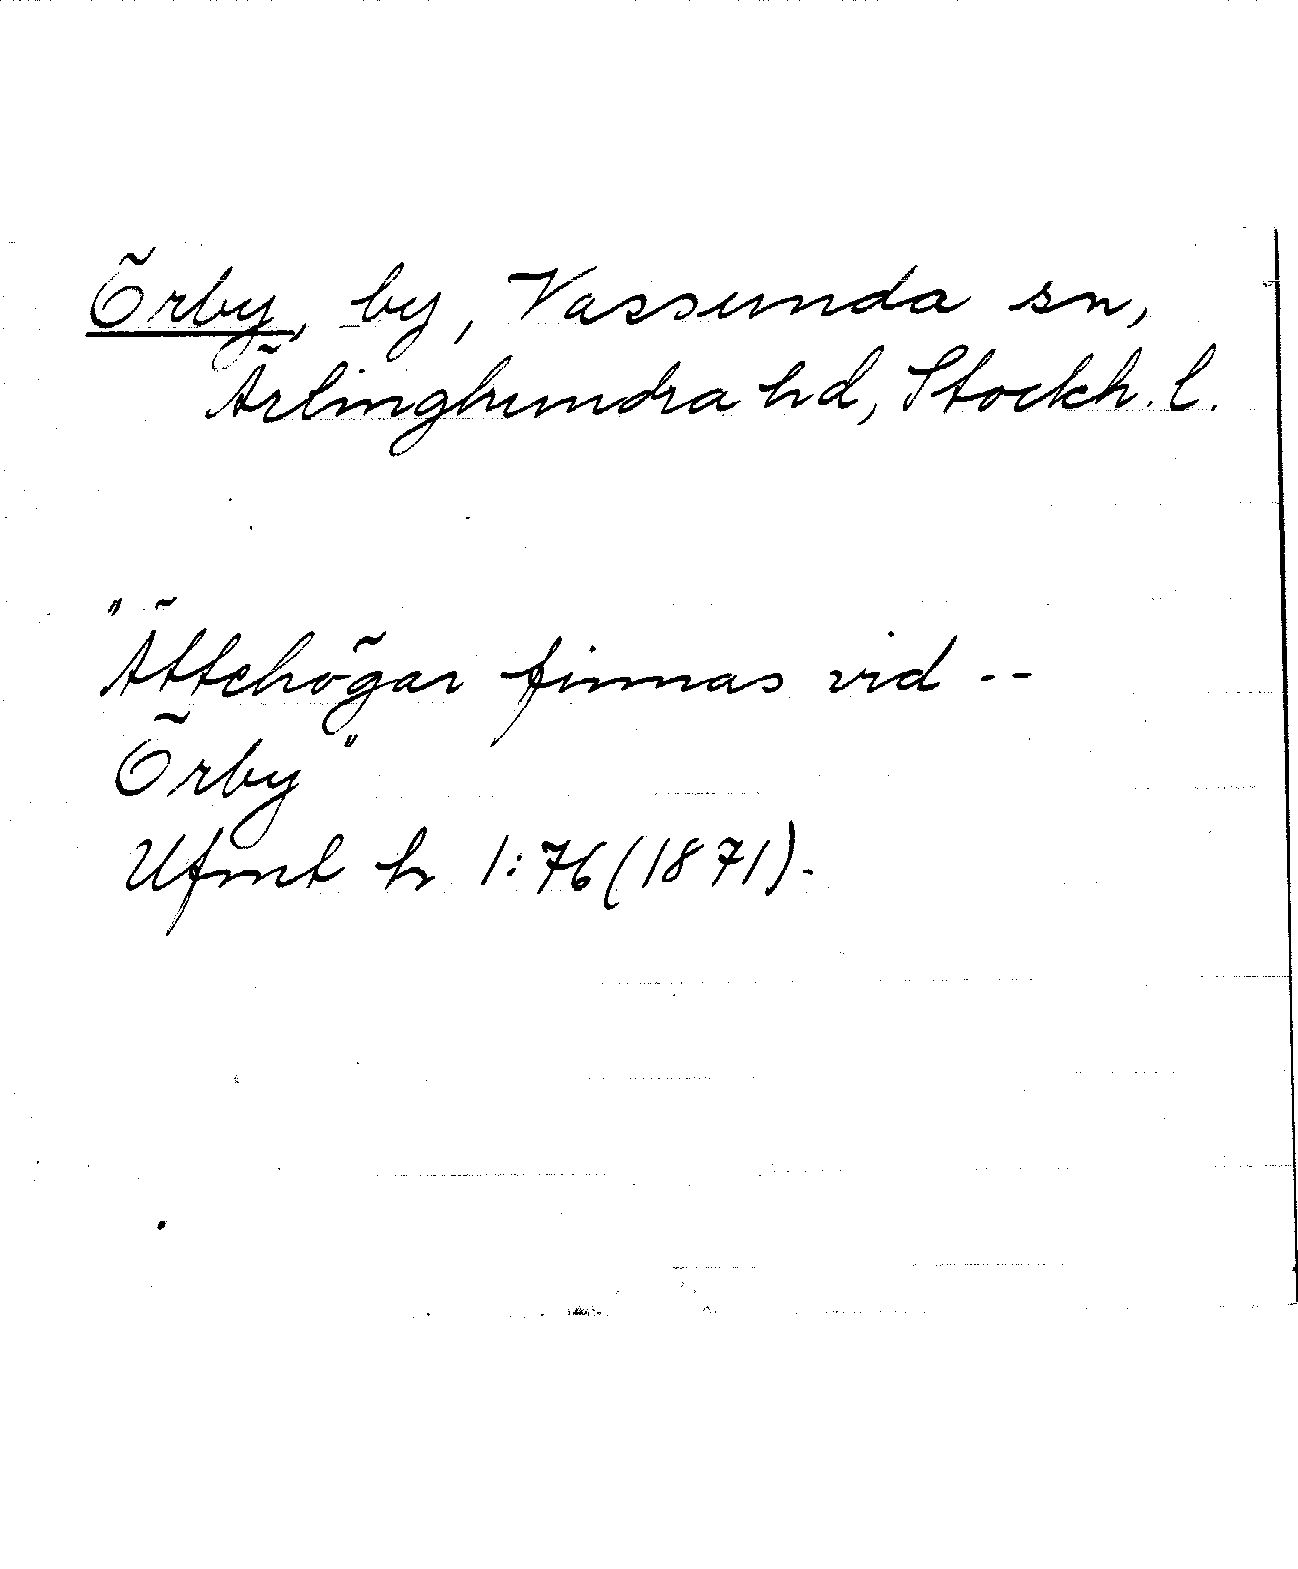 Örby, by, Vassunda sn,
Ärlinghundra hd, Stockh. l.
"Ättehögar finnas vid --
Örby"
Ufmt h 1:76 (1871).